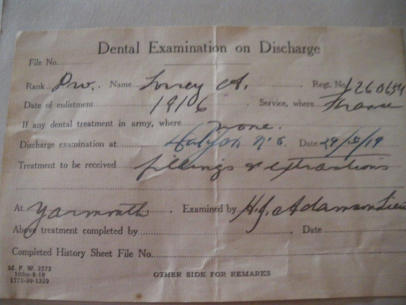 Dental Examination on Discharge
File No.
Rank Pvt. Name A. Regt. No.
Date of enlistment 1916 Service, where France
If any dental treatment in army, where none.
Discharge examination at Halifax N.S. Date
Treatment to be received fillings & extractions
At Yarmouth. Examined by H.G. Adamson
Above treatment completed by Date
Completed History Sheet File No.
OTHER SIDE FOR REMARKS